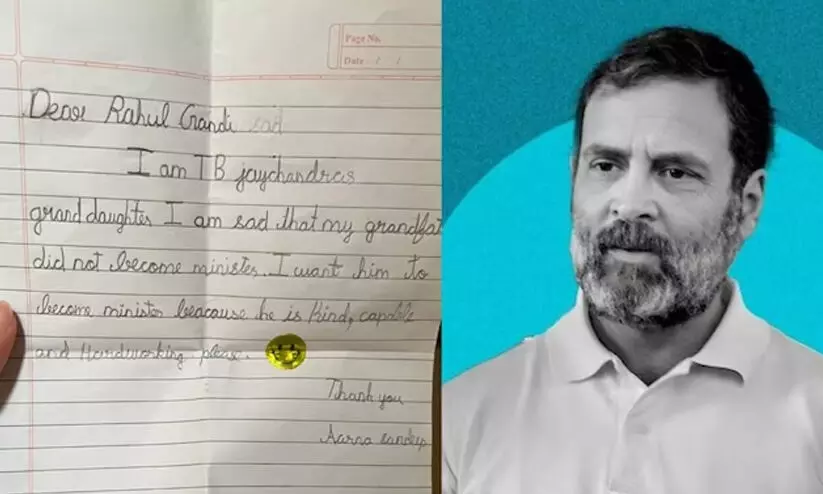 Page No.
Date / /
Dear Rahul Gandi sad
I am TB jaychandras
granddaughter I am sad that my grandfat
did not become minister. I want him to
become minister beacause he is kind, capable
and Hardworking please.
Thank you
Aarna sandeep